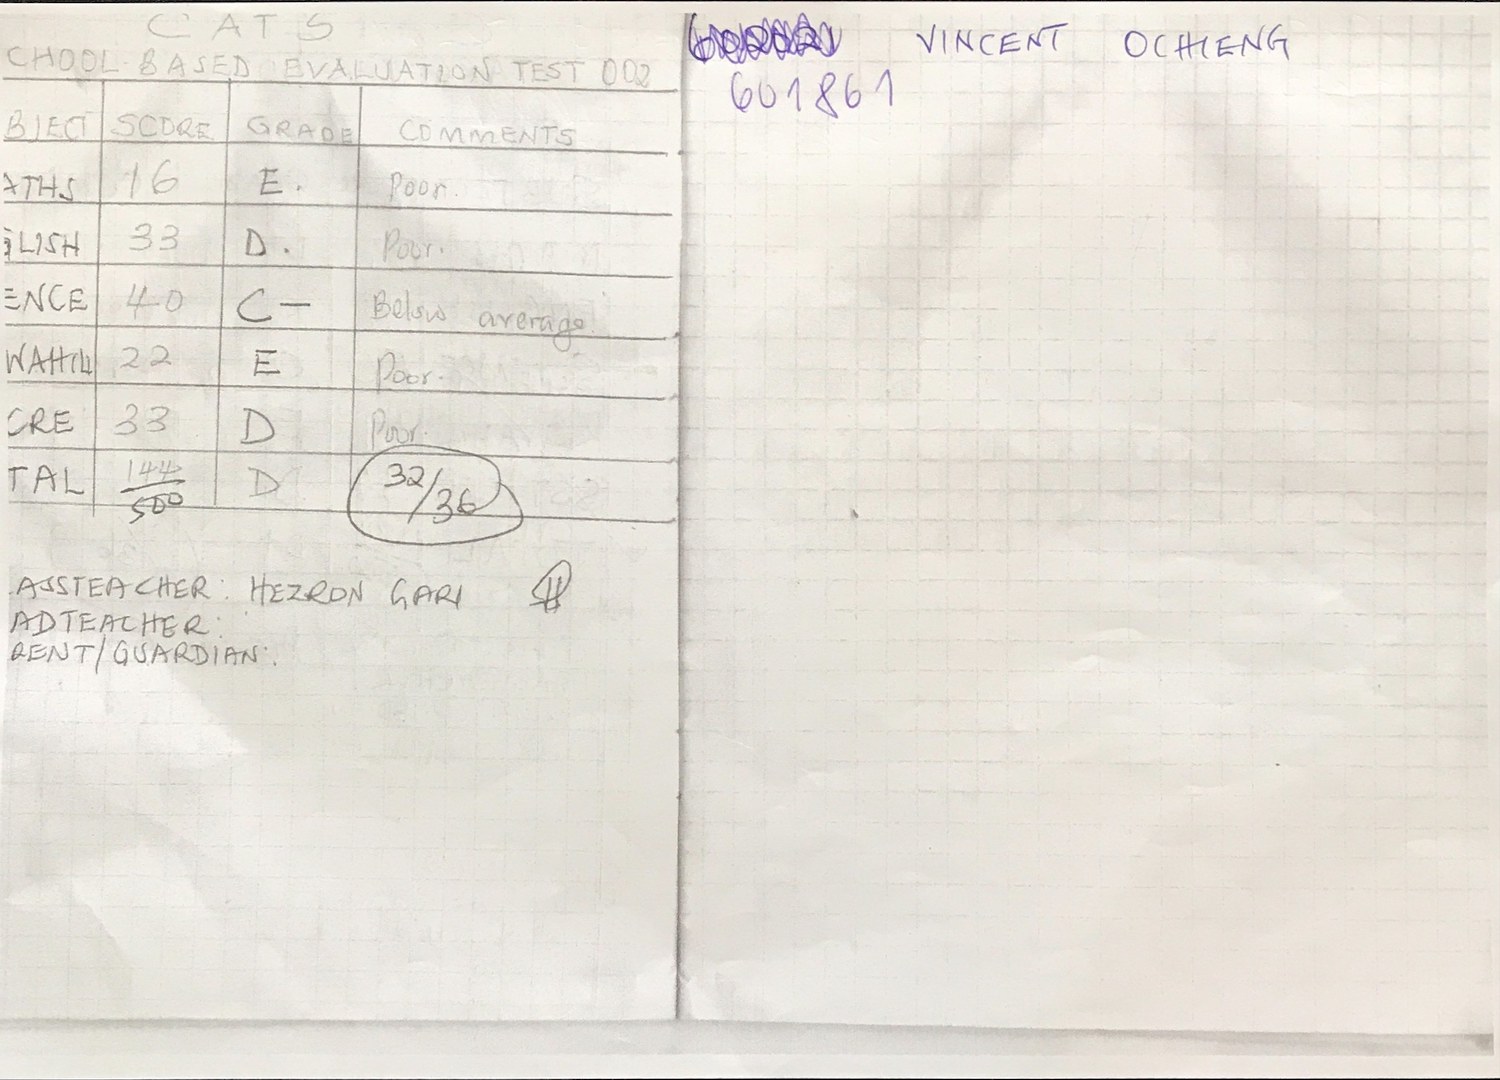 CATS
CHOOL-BASED EVALUATION TEST 002
BJECT SCORE GRADE COMMENTS
ATHS 16 E. Poor.
GLISH 33 D. Poor.
ENCE 40 C- Below average.
WAHILI 22 E Poor.
CRE 33 D Poor.
TAL 144/500 D 32/36
ASSTEACHER: HEZRON GARI
ADTEACHER:
RENT/GUARDIAN:
VINCENT OCHIENG
601861